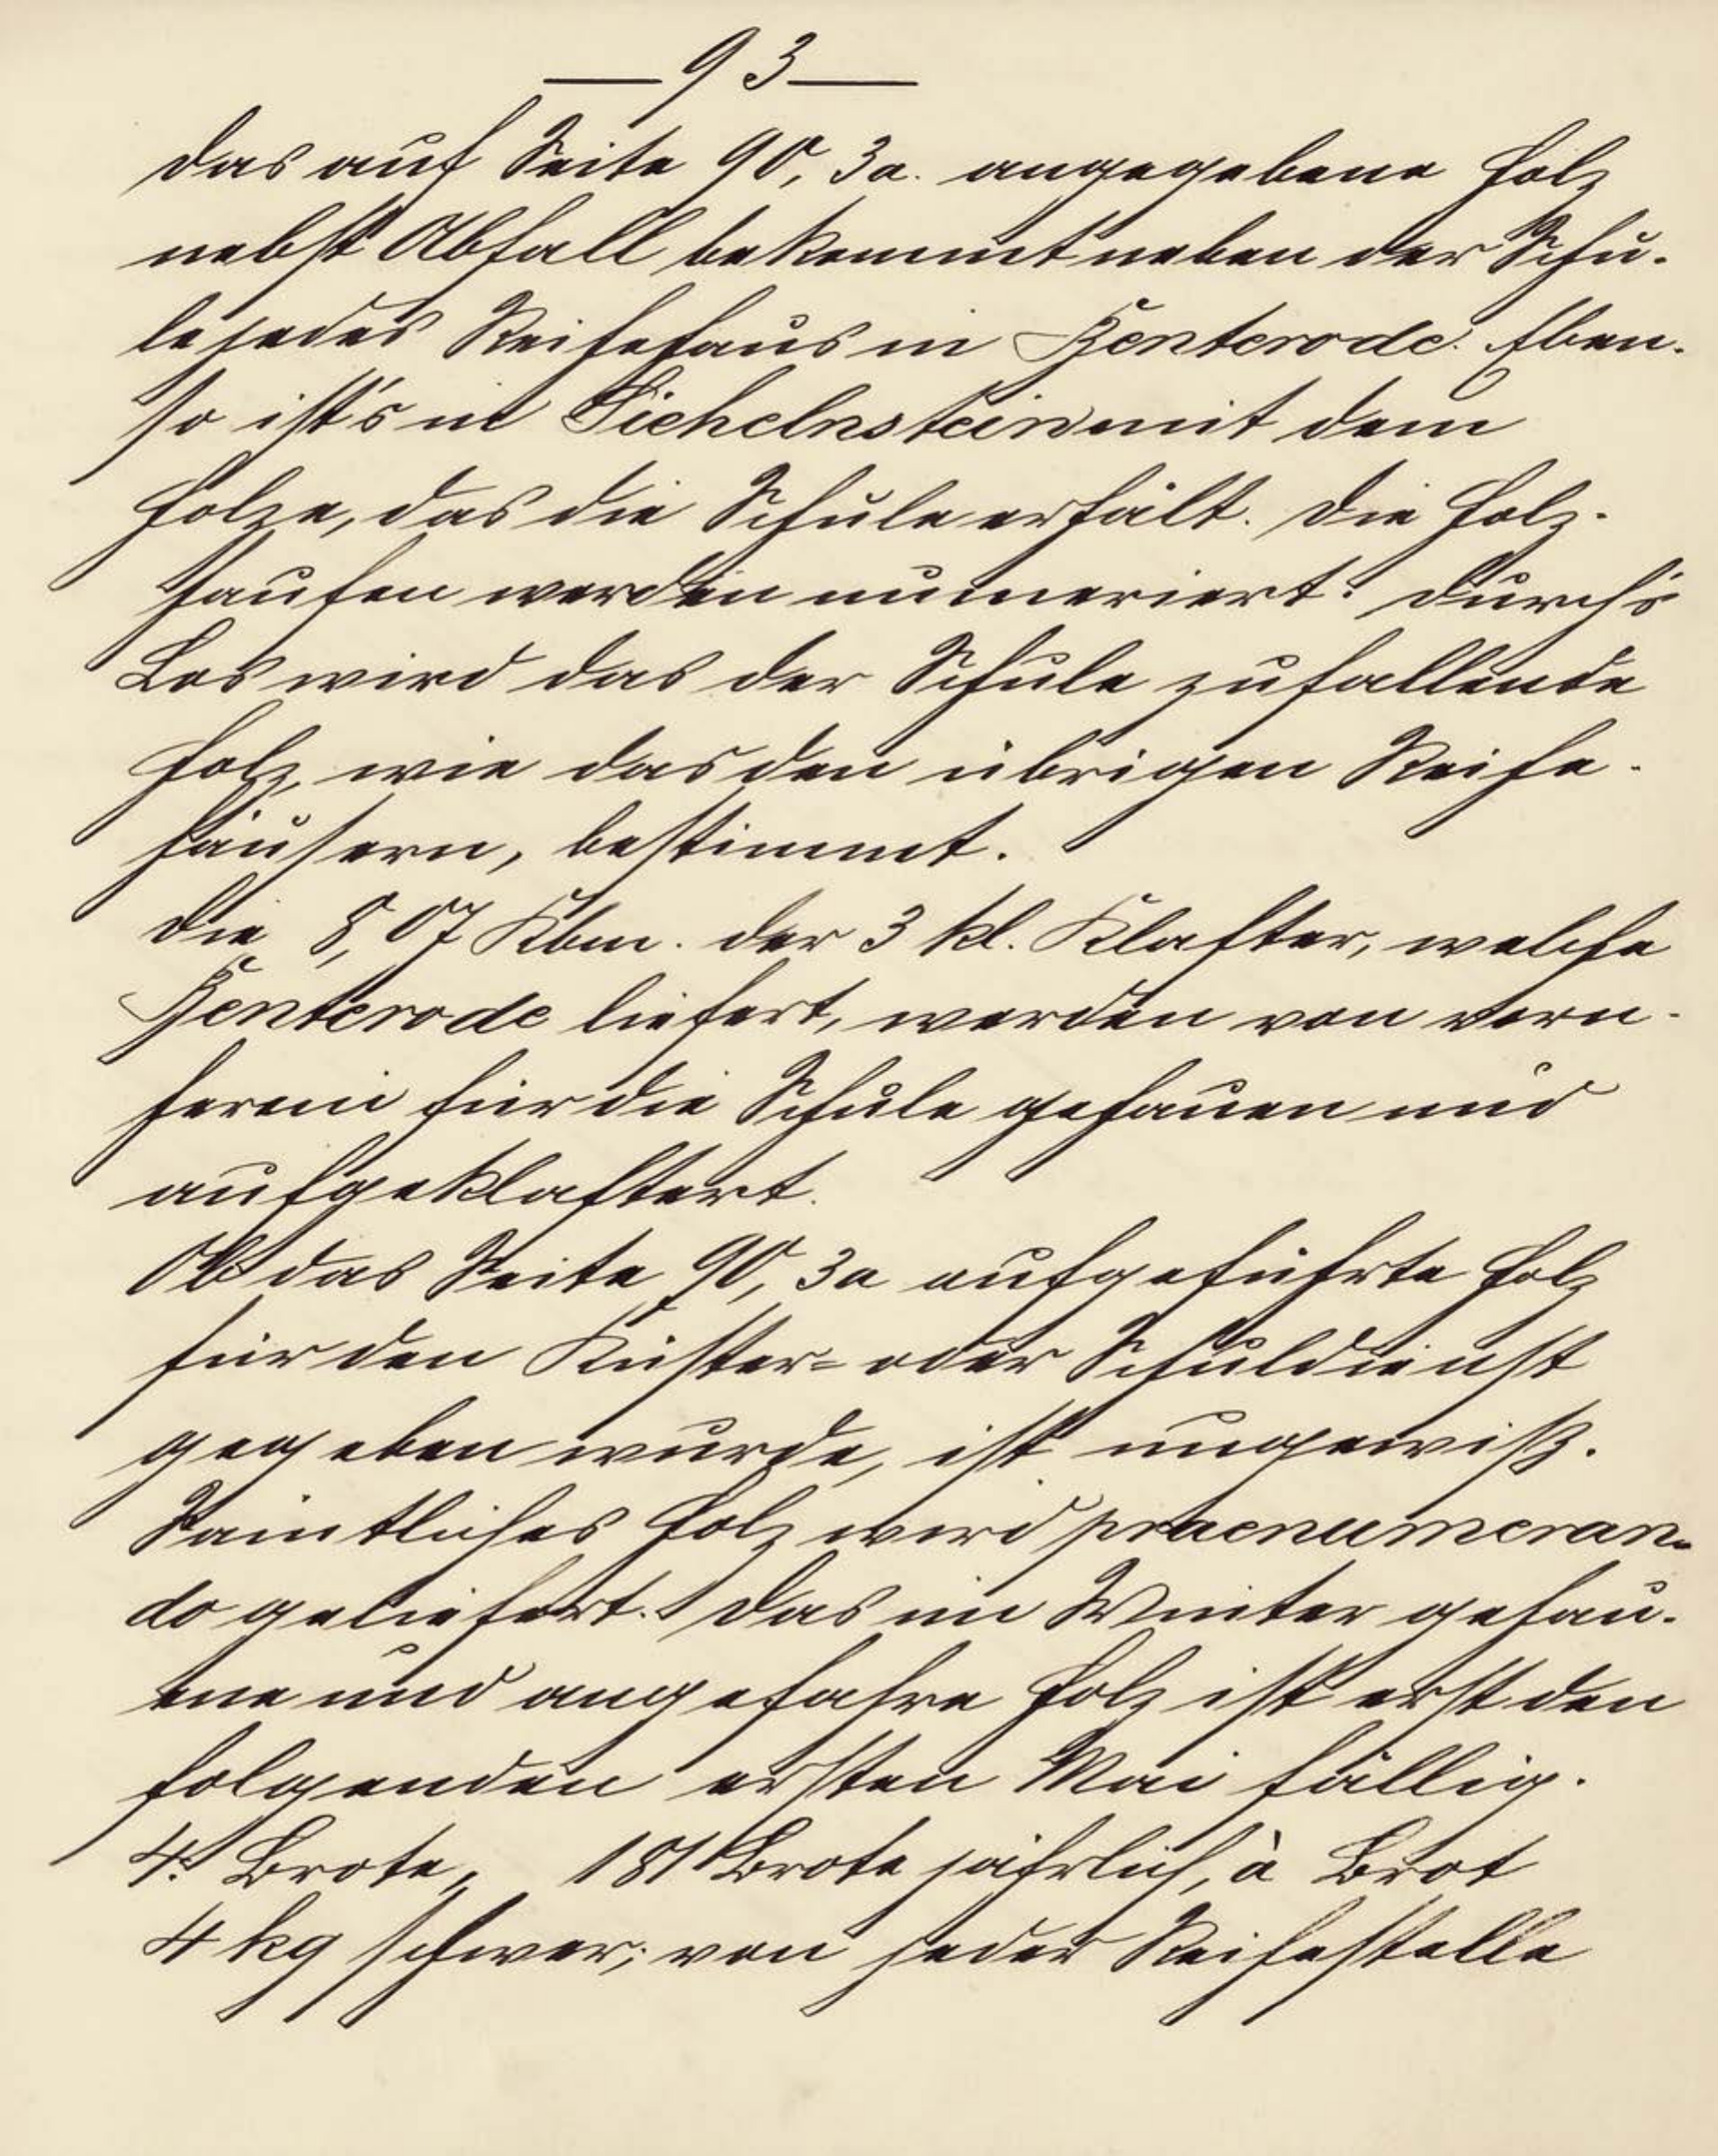 — 93 —
Das auf Seite 90, 3a. angegebene Holz
nebst Abfall bekommt neben der Schu-
le jedes Reihehaus in Benterode. Eben-
so ist's in Sichelnstein mit dem
Holze, das die Schule erhält. Die Holz-
haufen werden numeriert. Durch's
Los wird das der Schule zufallende
Holz, wie das den übrigen Reihe-
häusern, bestimmt.
Die 8,07 Kbm. der 3 kl. Klafter, welche
Benterode liefert, werden von vorn-
herein für die Schule gehauen und
aufgeklaftert.
Ob das Seite 90, 3a aufgeführte Holz
für den Küster- oder Schuldienst
gegeben wurde, ist ungewiß.
Sämtliches Holz wird praenumeran-
do geliefert. Das im Winter gehau-
ene und angefahre Holz ist erst den
folgenden ersten Mai fällig.
4. Brote, 181 Brote jährlich, à Brot
4 kg schwer; von jeder Reihestelle